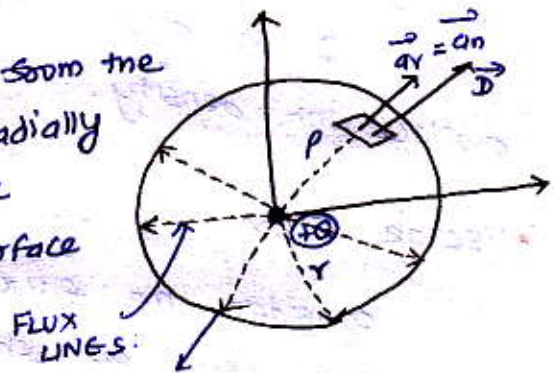 from the
adially
rface
FLUX
LINES.
ar = an
D
P
+Q
r